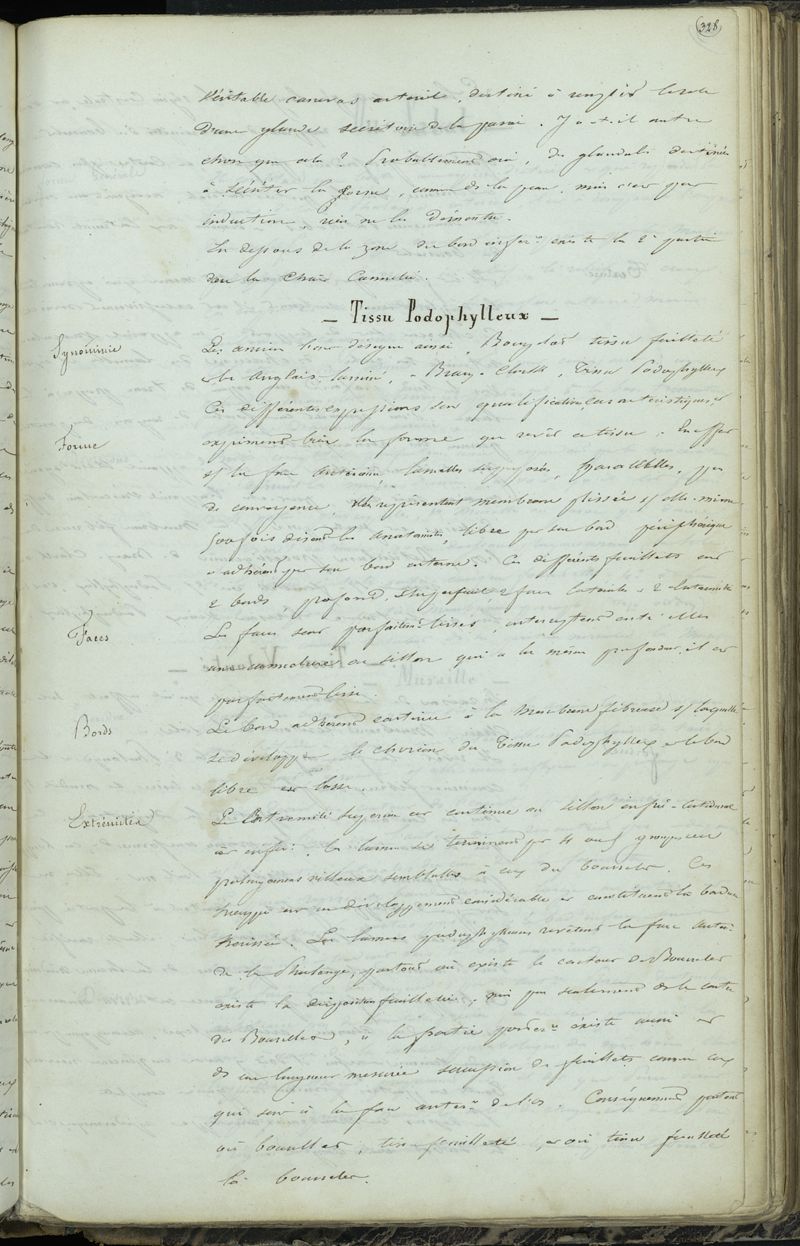 328
Véritable canevas artériel, destiné à remplir le role
d'une glande secretoire de la paroi. Y a-t-il autre
chose que cela ? Probablement oui, des glandules destinées
à sécréter la corne, comme de la peau, mais c'est par
induction, rien ne les démontre.
En dessous de la zone du bord infér. existe la 2e partie
dans la Chair Cannelée.
— Tissu Podophylleux —
Synonimie
Les anciens l'ont désigné ainsi, Bourgelat tissu feuilleté
et les Anglais laminé, Bracy-Clark, Tissu Podophylleux
Ces différentes expressions sont qualificatives, caractéristiques, et
Forme
expriment très la forme que revêt ce tissu. En effet
s/ la face antérieure, lamelles superposées, parallèles, peu
de convergence, elles représentent membrane plissée s/ elle-même
disent les anatomistes, libre par son bord périphérique
et adhérent par son bord interne. Ces différents feuillets ont
2 bords, profond, superficiel, 2 faces latérales et 2 extremités
Faces
Les faces sont parfaitemt lisses, interceptent entre elles
une cannelure ou sillon qui a la même profondeur, il est
parfaitement lisse.
Bords
Le bord adhérent continue à la Membrane fibreuse s/ laquelle
se développe le chorion du Tissu Podophylleux et le bord
libre est lisse.
Extrémités
L'Extrémité super. est continue au sillon
et infér. les lames se terminent par 4 ou 5
prolongemens villeux semblables à ceux du bourrelet. Ces
houppes ont un développement considérable et constituent la bordure
Les lames podophylleuses revêtent la face antér.
de la Phalange, partout où existe le contour du Bourrelet
existe la disposition feuilletée, non pas seulement de le contour
du Bourrelet, à la partie postér. existe aussi
de une longueur mesurée succession de feuillets comme ceux
qui sont à la face antér. de l'os. Conséquemment partout
où bourrelet, tissu feuilleté, et où tissu feuilleté
là bourrelet.